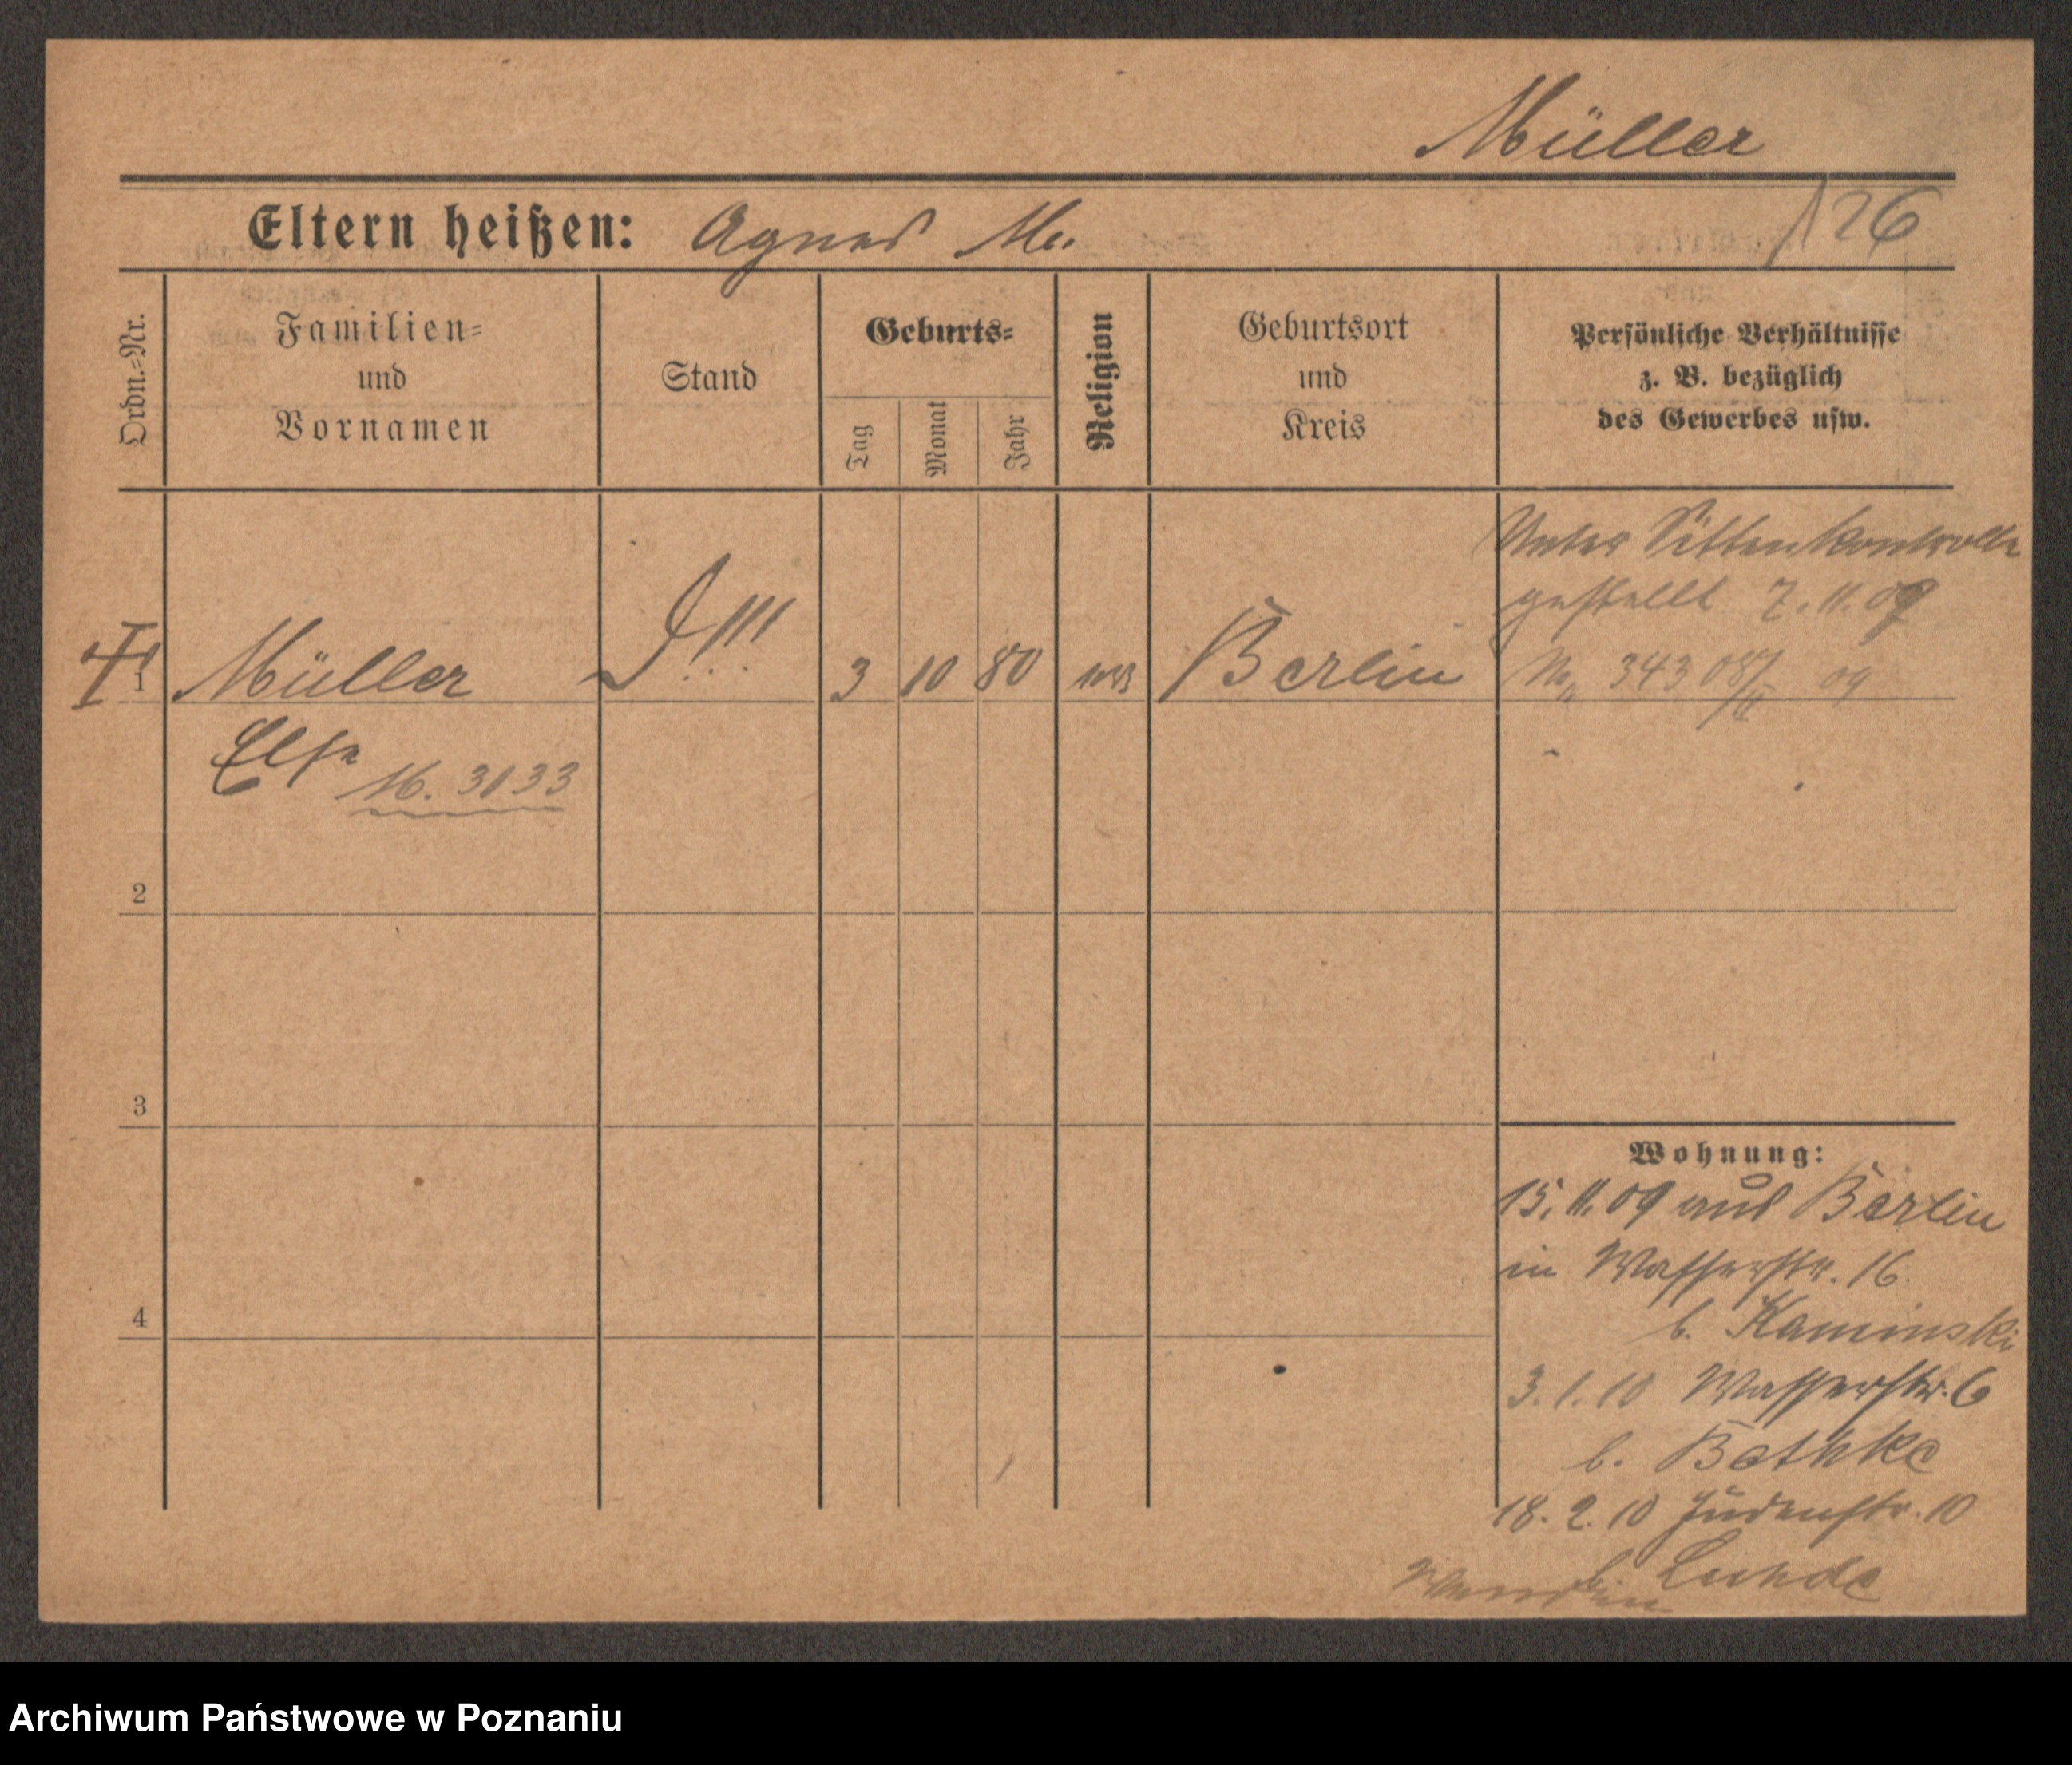 Müller
Eltern heißen: Agnes M.
126
Ordn.=Nr.
Familien=
und
Vornamen
Stand
Geburts=
Tag
Monat
Jahr
Religion
Geburtsort
und
Kreis
Persönliche Verhältnisse
z. B. bezüglich
des Gewerbes usw.
Unter Sittenkontrolle
gestellt 7. 11. 09
1 Müller 3 10 80 Berlin
34308/II 09
Else
M. 3133
2
3
4
Wohnung:
15. 11. 09 aus Berlin
in Wasserstr. 16
b. Kaminski
3. 1. 10 Wasserstr. 6
b. Bethke
18. 2. 10 Judenstr. 10
b. Luhde
Wenden
Archiwum Państwowe w Poznaniu